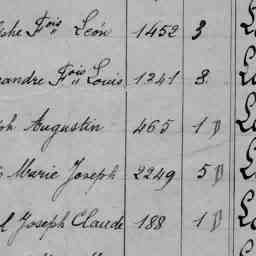 phe Fois León 1452 3
eandre Fois Louis 1241 8
ph Augustin 465 1 D
Marie Joseph 2249 5 D
l Joseph Claude 188 1 D